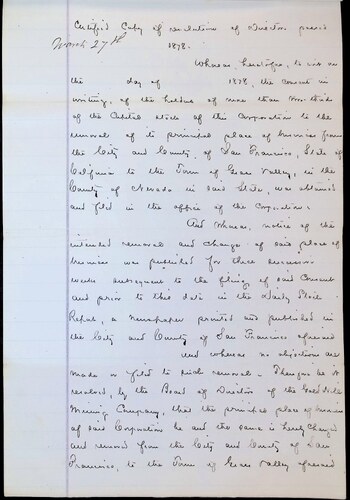 Certified Copy of resolutions of Directors passed
March 27th 1878.
Whereas heretofore, to wit on
the day of 1878, the consent in
writing, of the holders of more than two thirds
of the Capital stock of this Corporation to the
removal of its principal place of business from
the City and County of San Francisco, State of
California to the Town of Grass Valley, in the
County of Nevada in said State, was obtained
and filed in the office of the Corporation:
And Whereas, notice of the
intended removal and change of said place of
business was published for three successive
weeks subsequent to the filing of said Consent
and prior to this date in the Daily Stock
Report, a newspaper printed and published in
the City and County of San Francisco aforesaid
and whereas no objections are
made or filed to such removal. Therefore be it
resolved, by the Board of Directors of the Gold
Mining Company, that the principal place of business
of said Corporation be and the same is hereby changed
and removed from the City and County of San
Francisco, to the Town of Grass Valley aforesaid